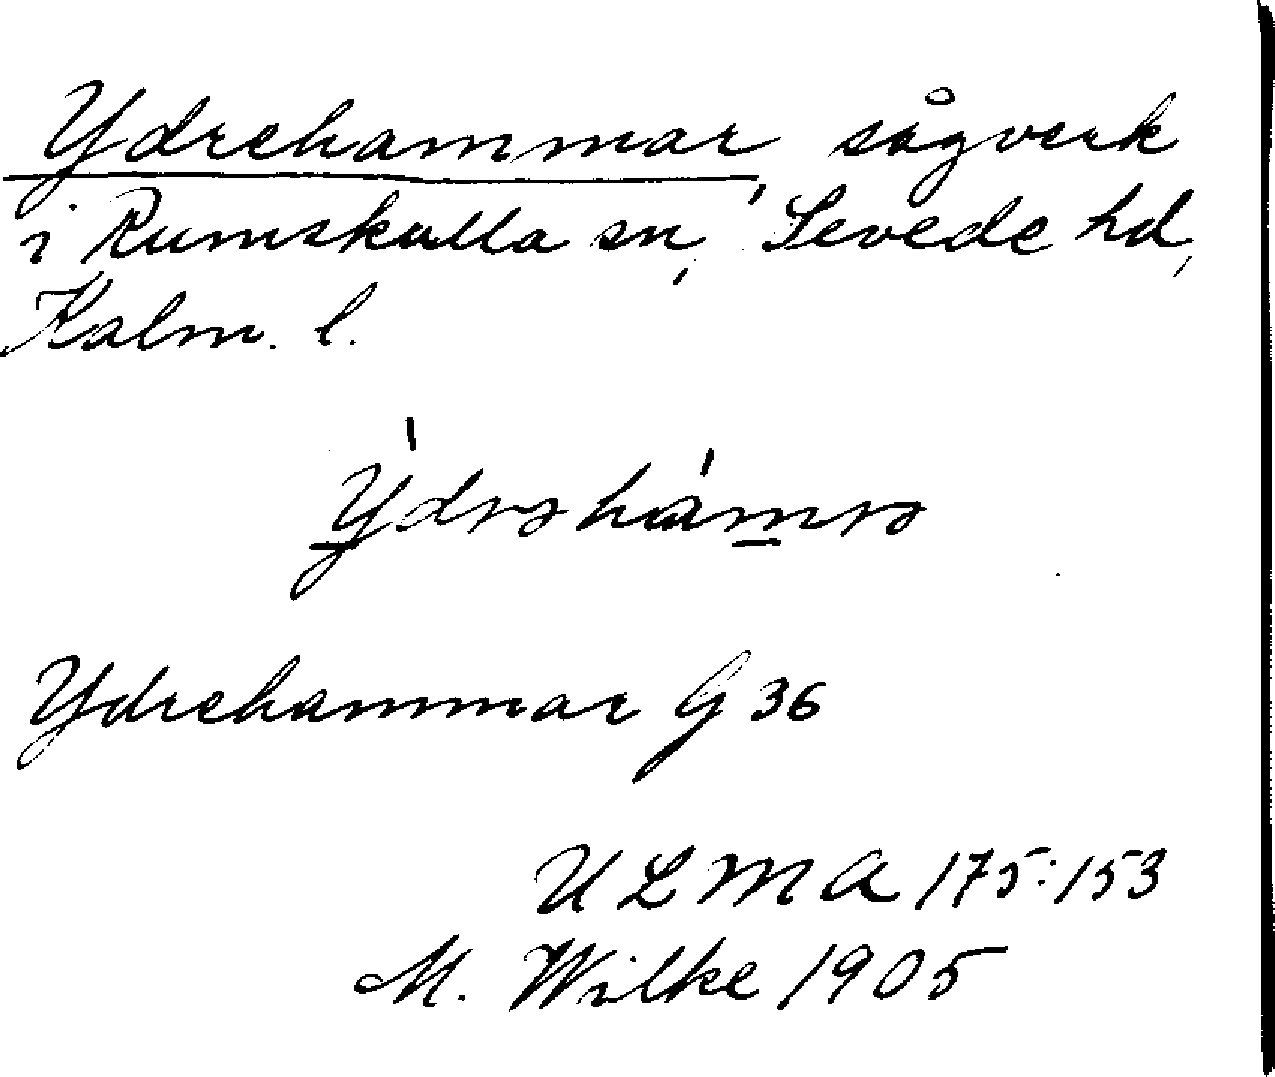 Ydrehammar, sågverk
i Rumskulla sn, Sevede hd,
Kalm. l.
Ýdrəhámrə
Ydrehammar G 36
ULMA 175:153
M. Wilke 1905